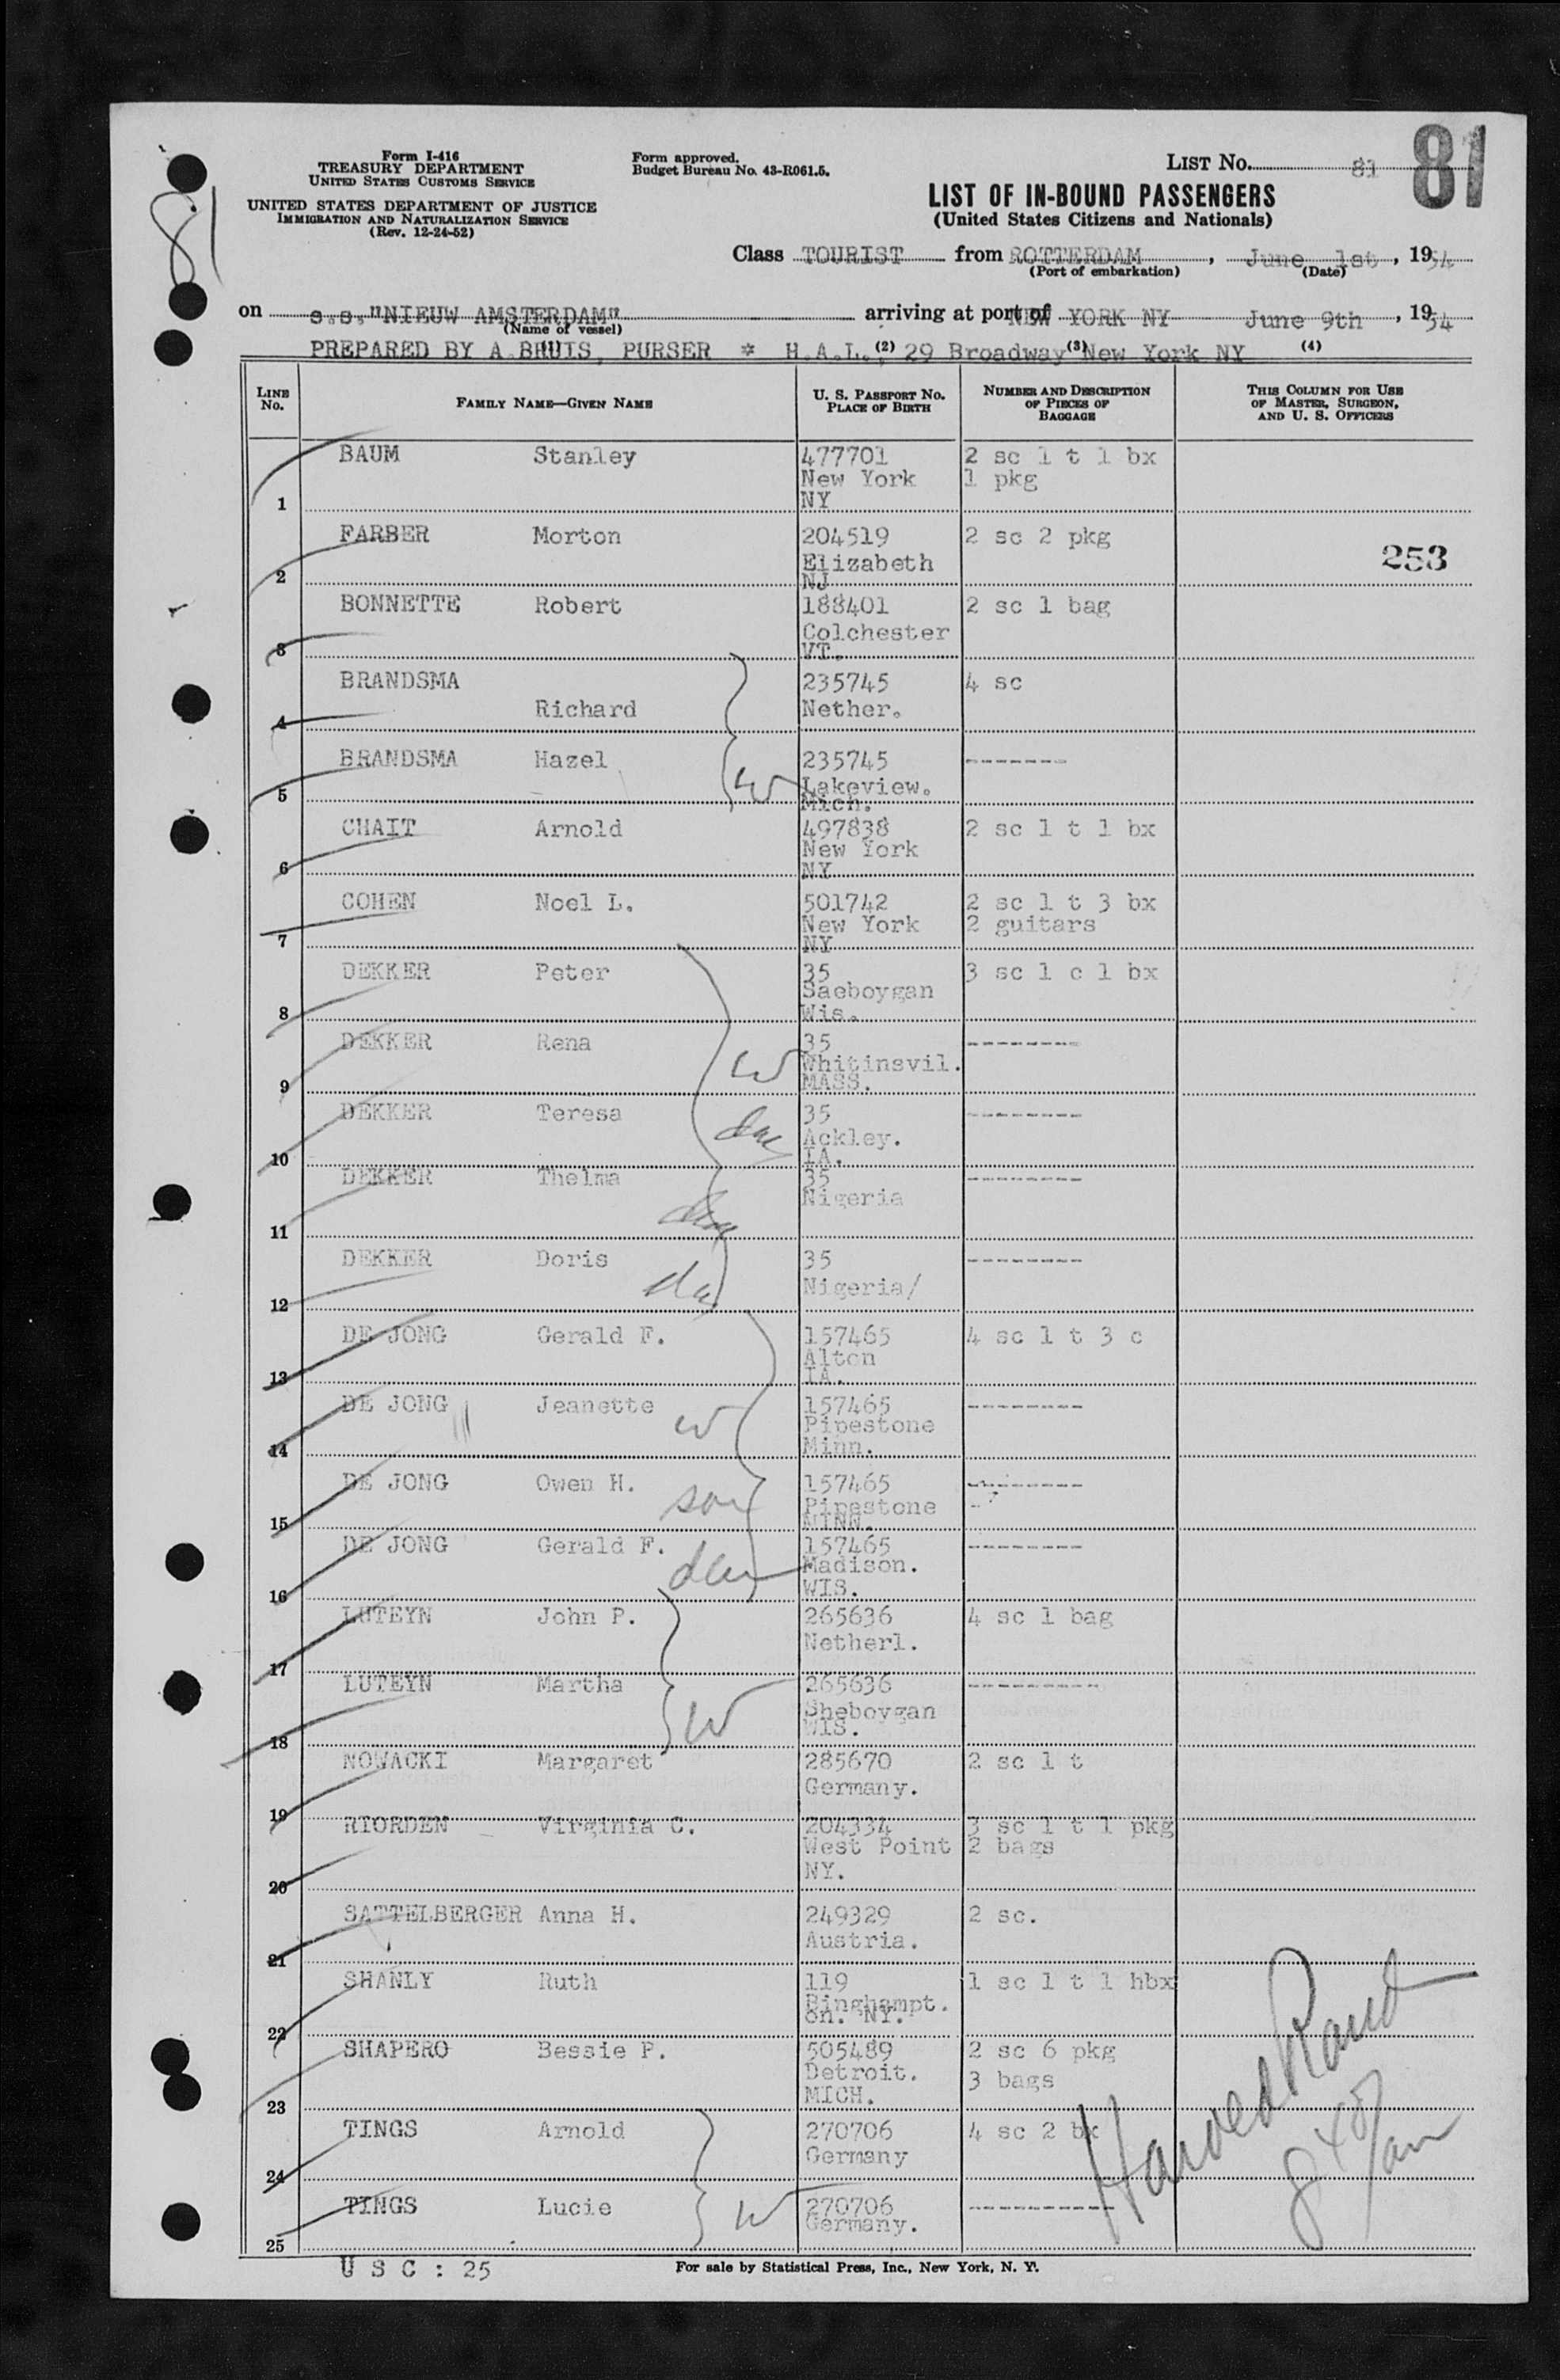 81
Form I-416
TREASURY DEPARTMENT
UNITED STATES CUSTOMS SERVICE
UNITED STATES DEPARTMENT OF JUSTICE
IMMIGRATION AND NATURALIZATION SERVICE
(Rev. 12-24-52)
Form approved.
Budget Bureau No. 43-R061.5.
LIST No. 81
81
LIST OF IN-BOUND PASSENGERS
(United States Citizens and Nationals)
Class TOURIST from ROTTERDAM, June 1st, 1954
(Port of embarkation) (Date)
on s.s."NIEUW AMSTERDAM" arriving at port of NEW YORK NY June 9th, 1954
(Name of vessel)
PREPARED BY A.BRUIS, PURSER * H.A.L. (2) 29 Broadway (3) New York NY (4)
LINE No. FAMILY NAME—GIVEN NAME U. S. PASSPORT No. PLACE OF BIRTH NUMBER AND DESCRIPTION OF PIECES OF BAGGAGE THIS COLUMN FOR USE OF MASTER, SURGEON, AND U. S. OFFICERS
BAUM Stanley 477701 2 sc 1 t 1 bx
New York 1 pkg
1 NY
FARBER Morton 204519 2 sc 2 pkg
Elizabeth 253
2 NJ
BONNETTE Robert 188401 2 sc 1 bag
Colchester
3 VT.
BRANDSMA 235745 4 sc
Richard Nether.
4
BRANDSMA Hazel 235745 -------
W Lakeview.
5 Mich.
CHAIT Arnold 497838 2 sc 1 t 1 bx
New York
6 NY
COHEN Noel L. 501742 2 sc 1 t 3 bx
New York 2 guitars
7 NY
DEKKER Peter 35 3 sc 1 c 1 bx
Saeboygan
8 Wis.
DEKKER Rena 35 --------
W Whitinsvil.
9 MASS.
DEKKER Teresa 35 --------
dau Ackley.
10 IA.
DEKKER Thelma 35 --------
dau Nigeria
11
DEKKER Doris 35 --------
dau Nigeria/
12
DE JONG Gerald F. 157465 4 sc 1 t 3 c
Alton
13 IA.
DE JONG Jeanette 157465 --------
W Pipestone
14 Minn.
DE JONG Owen H. 157465 --------
son Pipestone
15 MINN.
DE JONG Gerald F. 157465 --------
Madison.
16 WIS.
LUTEYN John P. 265636 4 sc 1 bag
Netherl.
17
LUTEYN Martha 265636 ---------
W Sheboygan
18 WIS.
NOWACKI Margaret 285670 2 sc 1 t
Germany.
19
RIORDEN Virginia C. 204334 3 sc 1 t 1 pkg
West Point 2 bags
20 NY.
SATTELBERGER Anna H. 249329 2 sc.
Austria.
21
SHANLY Ruth 119 1 sc 1 t 1 hbx
Binghampt.
22 on. NY.
SHAPERO Bessie P. 505489 2 sc 6 pkg
Detroit. 3 bags
23 MICH.
TINGS Arnold 270706 4 sc 2 bx
Germany
24
TINGS Lucie 270706 ----------
W Germany.
25
U S C : 25
For sale by Statistical Press, Inc., New York, N. Y.